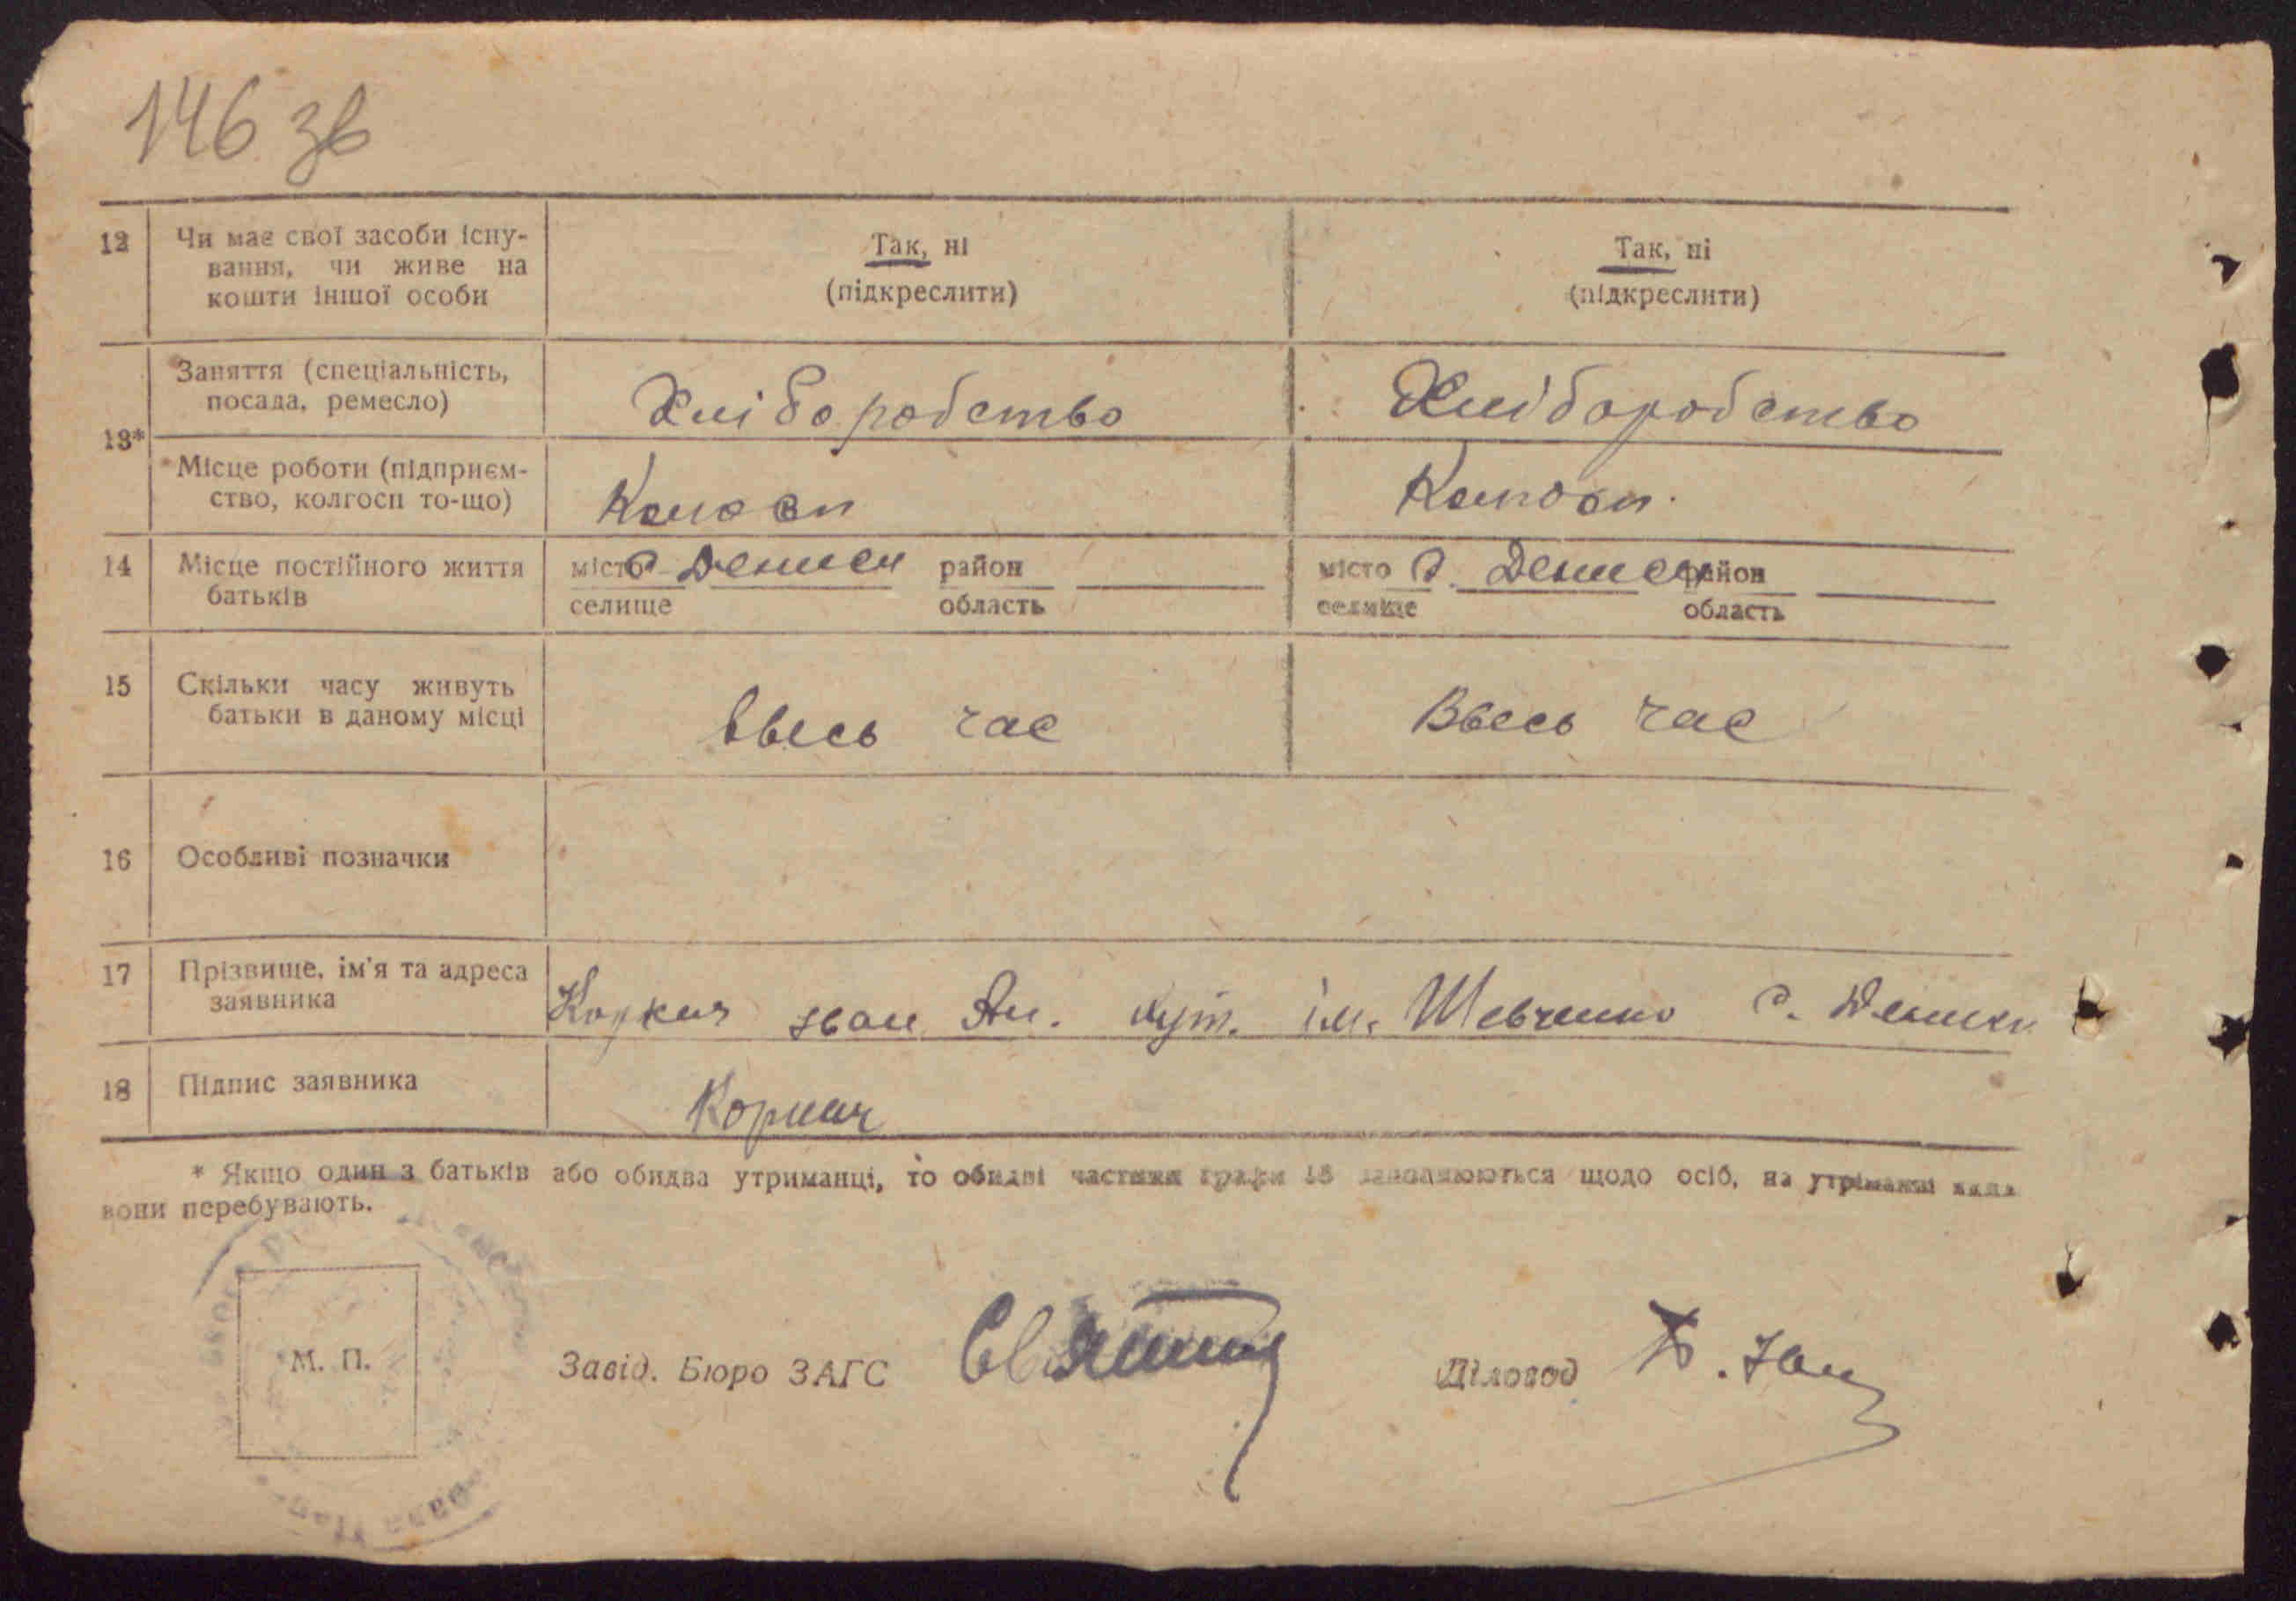 146 зв
12 Чи має свої засоби існу- Так, ні Так, ні
вання, чи живе на
кошти іншої особи (підкреслити) (підкреслити)
Заняття (спеціальність,
посада, ремесло) Хліборобство Хліборобство
13*
Місце роботи (підприєм-
ство, колгосп то-що)
14 Місце постійного життя місто с. Дениси район місто с. Дениси район
батьків селище область селище область
15 Скільки часу живуть
батьки в даному місці Ввесь час Ввесь час
16 Особливі позначки
17 Прізвище, ім'я та адреса
заявника Іван Ан. кут. ім. Шевченко с. Дениси
18 Підпис заявника
* Якщо один з батьків або обидва утриманці, то обидві частини графи 13 заповнюються щодо осіб, на утриманні яких
вони перебувають.
М. П. Завід. Бюро ЗАГС Діловод